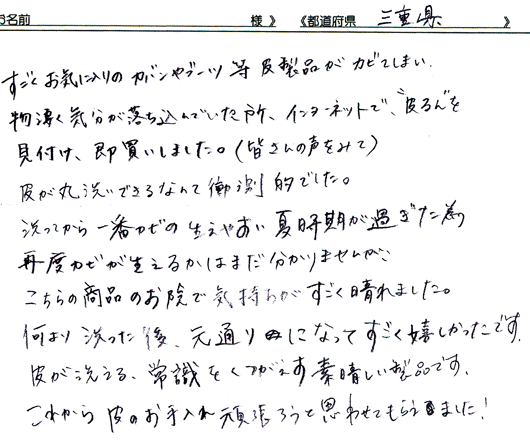 お名前 様 》 《都道府県 三重県 》
すごくお気に入りのカバンやブーツ等皮製品がカビてしまい、
物凄く気分が落ち込んでいた所、インターネットで、"皮るん"を
見付け、即買いしました。(皆さんの声をみて)
皮が丸洗いできるなんて衝劇的でした。
洗ってから一番カビの生えやすい夏時期が過ぎた為
再度カビが生えるかはまだ分かりませんが、
こちらの商品のお陰で気持ちがすごく晴れました。
何より洗った後、元通りになってすごく嬉しかったです。
皮が洗える、常識をくつがえす素晴しい製品です。
これから皮のお手入れ頑張ろうと思わせてもらえました!